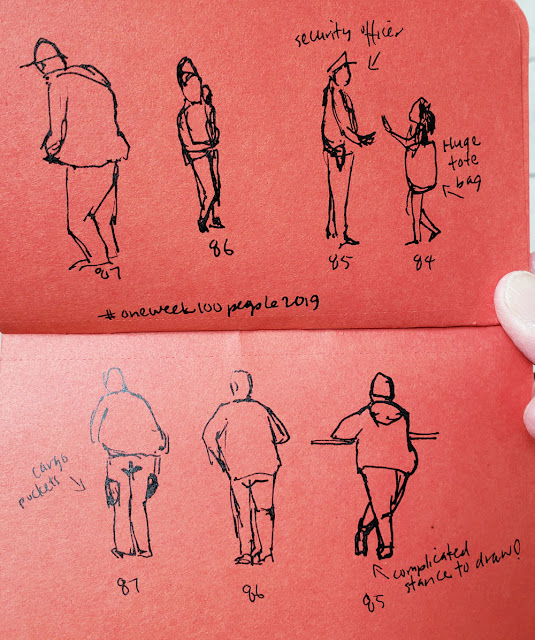 security officer
Huge
tote
bag
87
86
85
84
#oneweek100people2019
cargo
pockets
87
86
85
complicated
stance to draw!